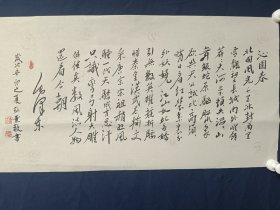 沁园春
北国风光千里冰封万里
雪飘望长城内外惟余
莽莽大河上下顿失滔滔山
舞银蛇原驰蜡象
欲与天公试比高须
晴日看红装素裹分
外妖娆江山如此多娇
引无数英雄竞折腰
惜秦皇汉武略输文
采唐宗宋祖稍逊风
骚一代天骄成吉思汗
只识弯弓射大雕
俱往矣数风流人物
还看今朝
毛泽东